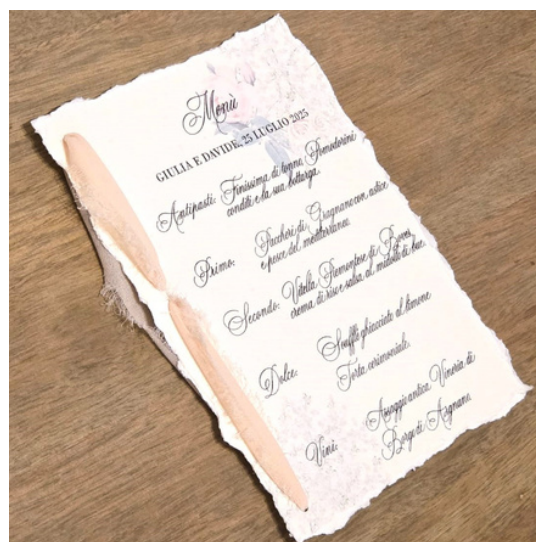 Menù
GIULIA E DAVIDE, 25 LUGLIO 2025
Antipasti: Finissima di tonno, Pomodorini
conditi e la sua bottarga.
Primo: Paccheri di Gragnano con astice
e pesce del mediterraneo.
Secondo: Vitella Piemontese di Boves,
crema di riso e salsa al midollo di bue.
Dolce: Soufflé ghiacciato al limone
Torta cerimoniale.
Vini: Assaggio antica Vineria di
Borgo di Asgnano.